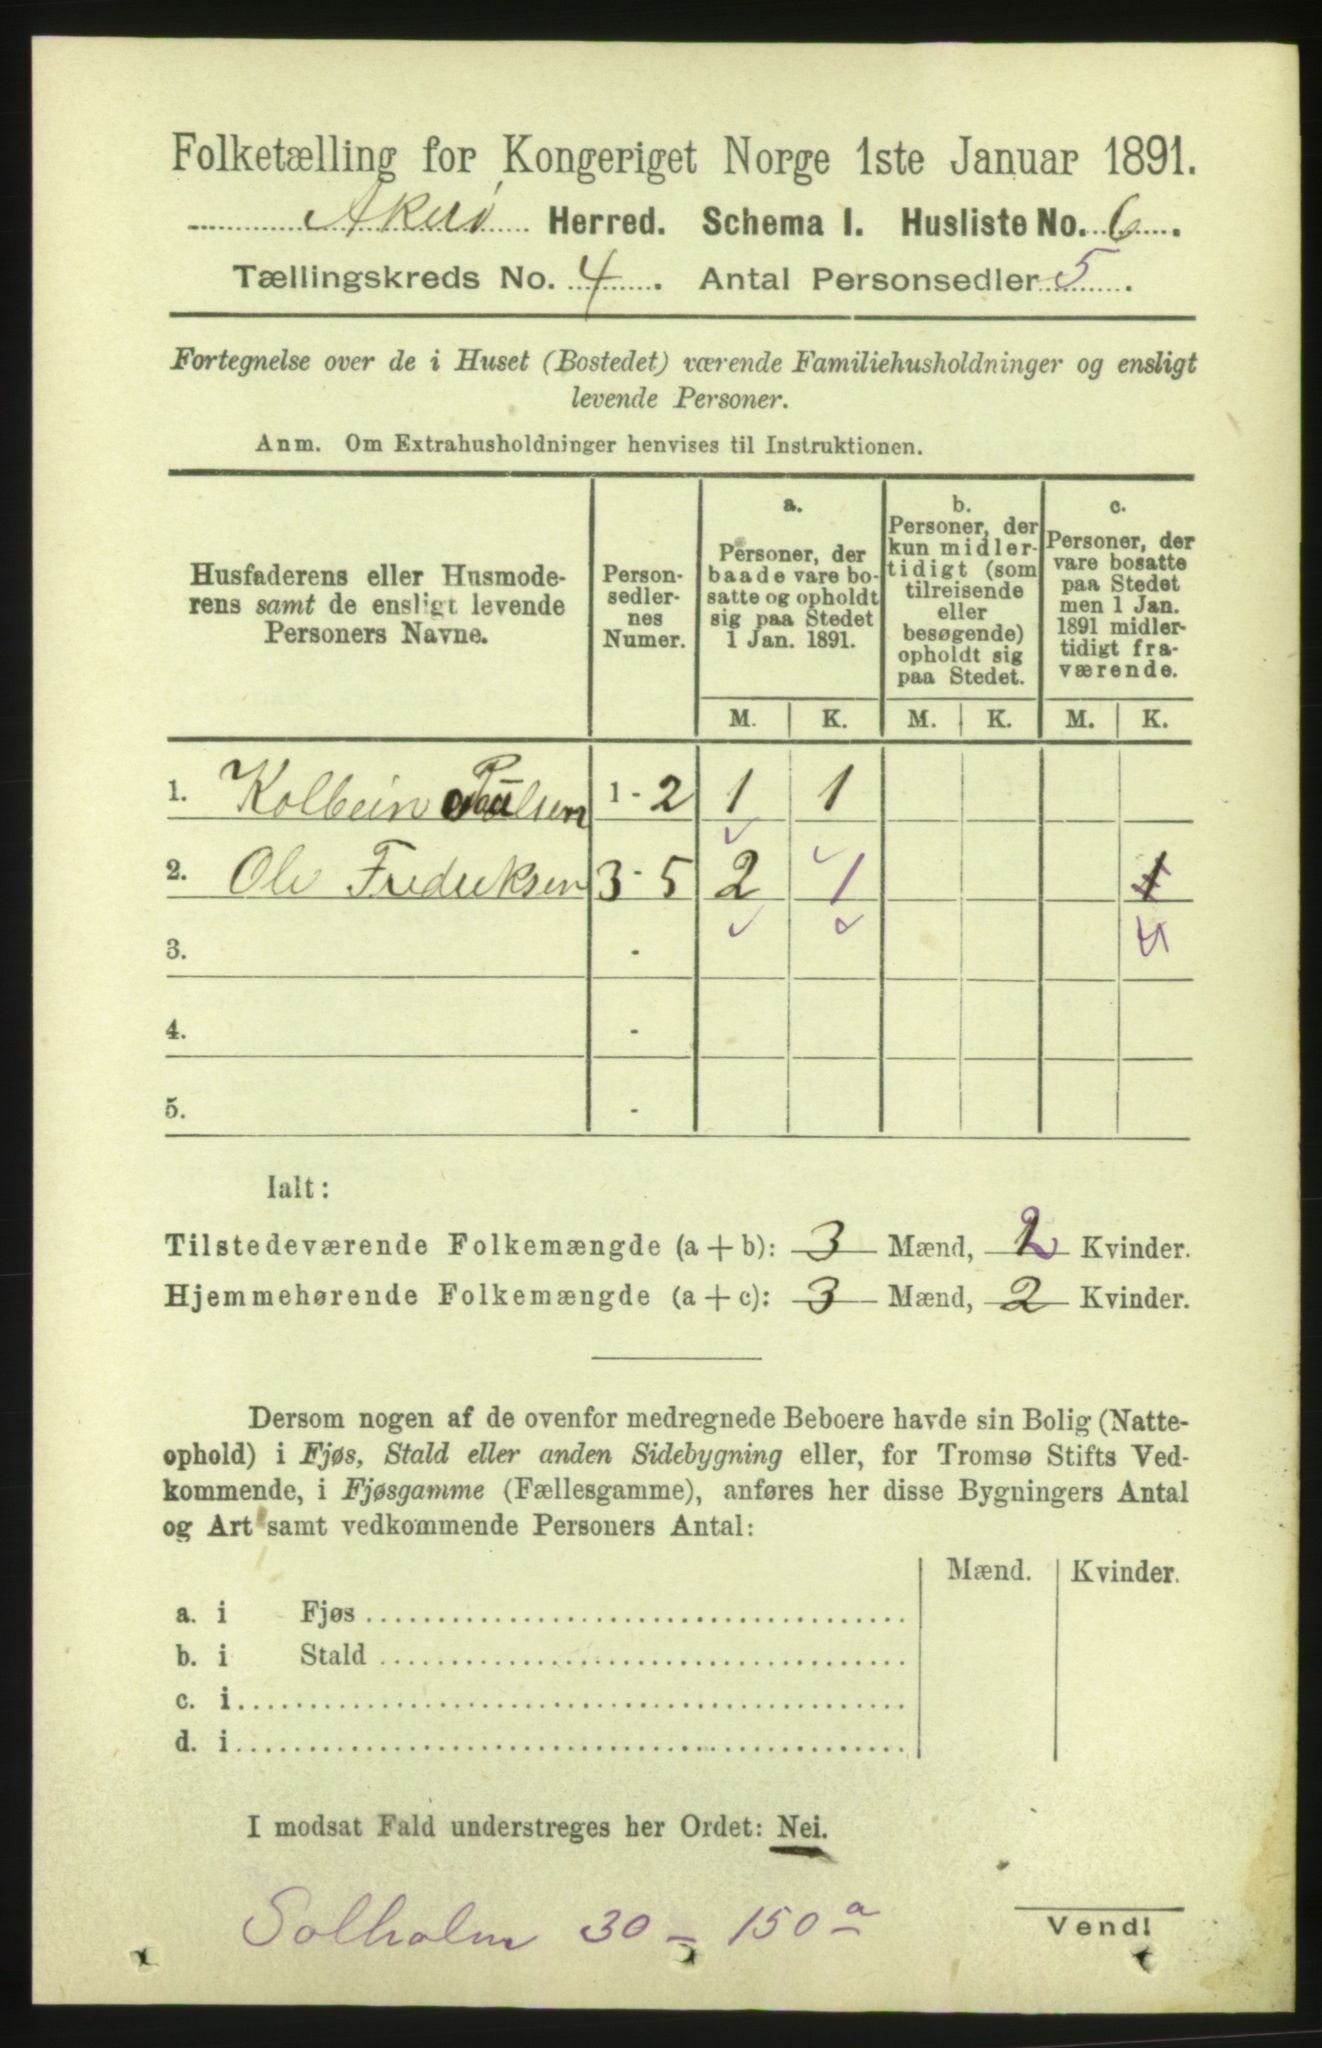 Folketælling for Kongeriget Norge 1ste Januar 1891.
Akerø Herred. Schema I. Husliste No. 6.
Tællingskreds No. 4. Antal Personsedler 5.
Fortegnelse over de i Huset (Bostedet) værende Familiehusholdninger og ensligt
levende Personer.
Anm. Om Extrahusholdninger henvises til Instruktionen.
Husfaderens eller Husmode-
rens samt de ensligt levende
Personers Navne.
Person-
sedler-
nes
Numer.
a.
Personer, der
baade vare bo-
satte og opholdt
sig paa Stedet
1 Jan. 1891.
b.
Personer, der
kun midler-
tidigt (som
tilreisende
eller
besøgende)
opholdt sig
paa Stedet.
c.
Personer, der
vare bosatte
paa Stedet
men 1 Jan.
1891 midler-
tidigt fra-
værende.
M. K. M. K. M. K.
1. Kolbein Paulsen 1 - 2 1 1
2. Ole Fredriksen 3 - 5 2 1 1
3. -
4. -
5. -
Ialt:
Tilstedeværende Folkemængde (a + b): 3 Mænd, 2 Kvinder.
Hjemmehørende Folkemængde (a + c): 3 Mænd, 2 Kvinder.
Dersom nogen af de ovenfor medregnede Beboere havde sin Bolig (Natte-
ophold) i Fjøs, Stald eller anden Sidebygning eller, for Tromsø Stifts Ved-
kommende, i Fjøsgamme (Fællesgamme), anføres her disse Bygningers Antal
og Art samt vedkommende Personers Antal:
Mænd. Kvinder.
a. i Fjøs
b. i Stald
c. i
d. i
I modsat Fald understreges her Ordet: Nei.
Solholm 30 - 150 a
Vend!